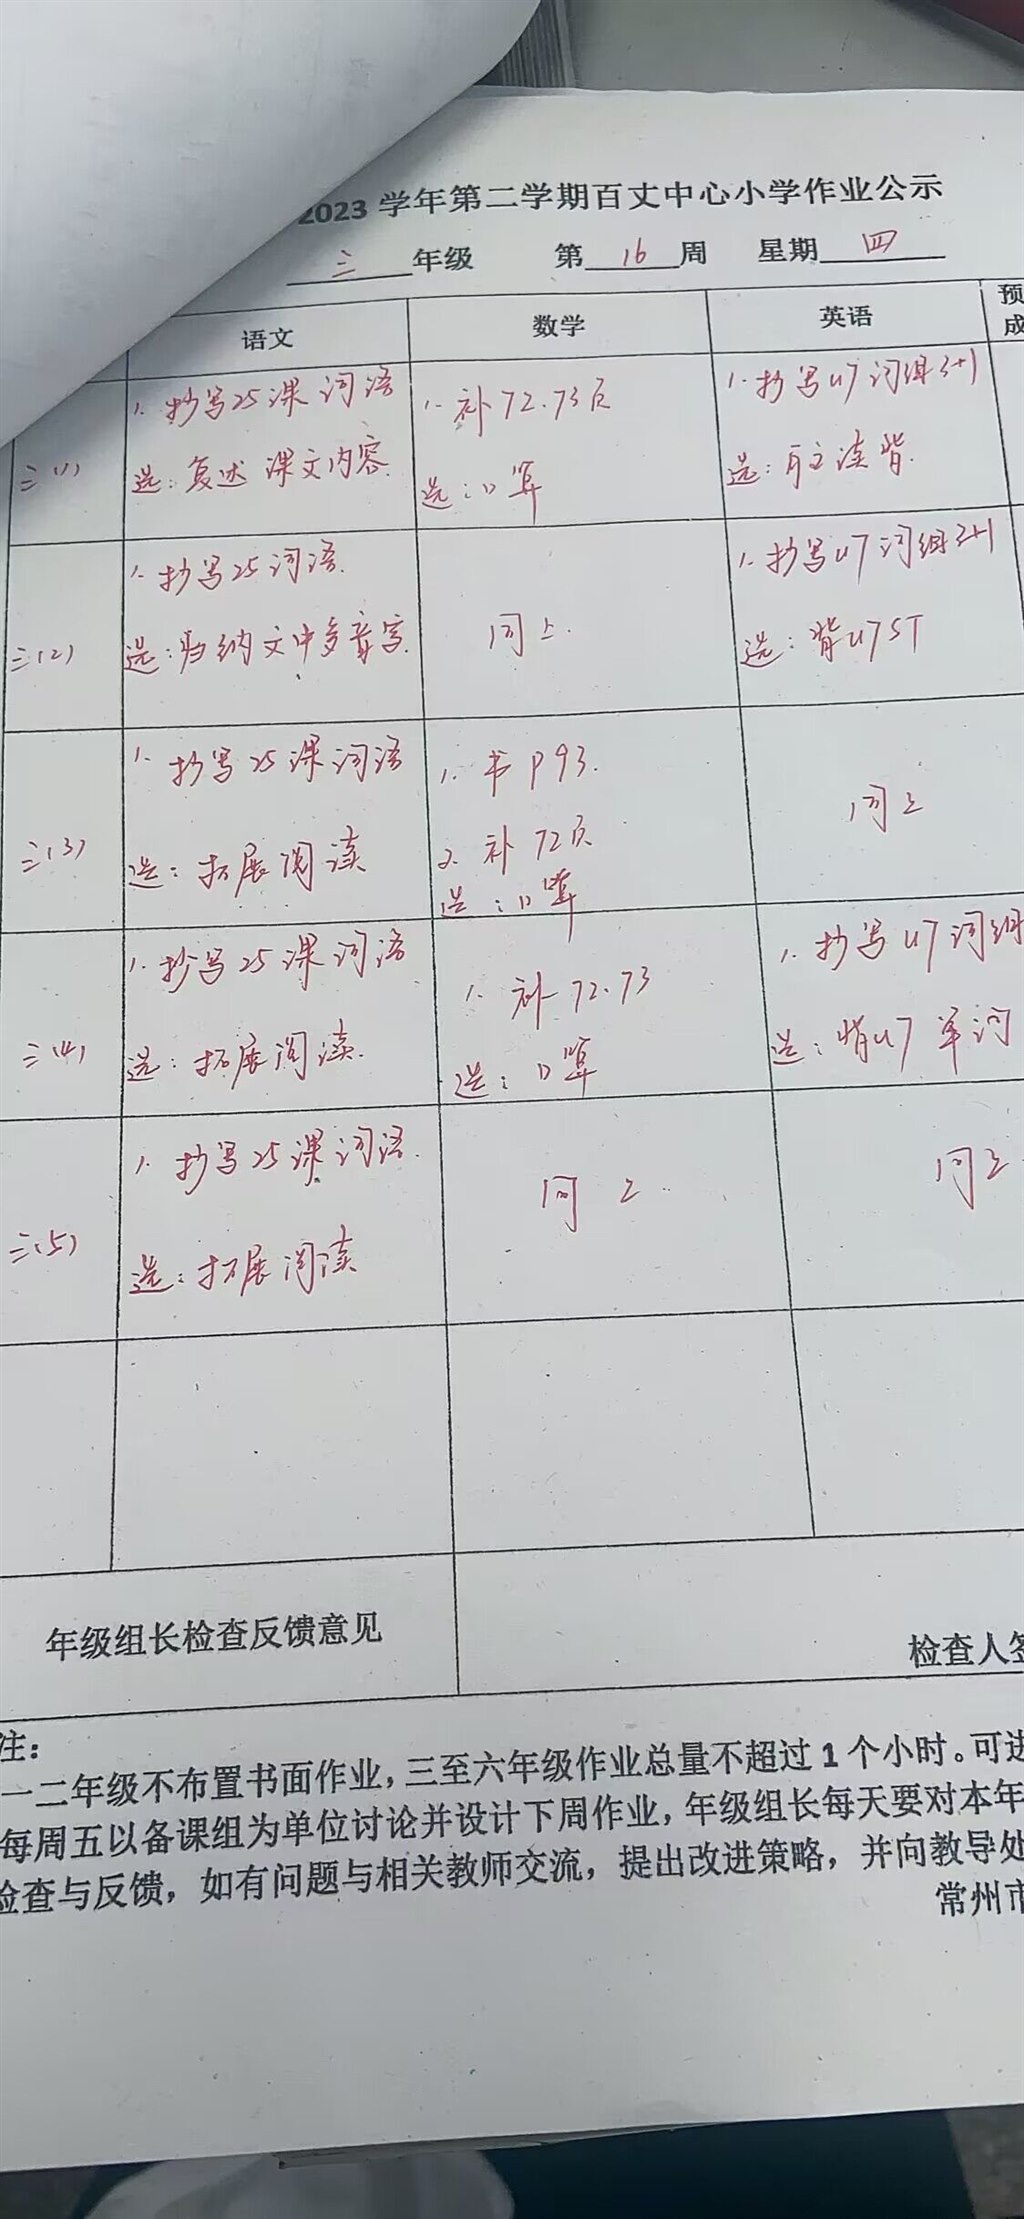 2023 学年第二学期百丈中心小学作业公示
三 年级 第 16 周 星期 四
语文 数学 英语 预
成
三(1)
1. 抄写25课词语
选: 复述 课文内容.
1. 补72.73页
选: 口算
1. 抄写U7词组3+1
选: 听读背.
三(2)
1. 抄写25词语.
选: 归纳文中多音字.
同上.
1. 抄写U7词组3+1
选: 背U7ST
三(3)
1. 抄写25课词语
选: 拓展阅读
1. 书P93.
2. 补72页
选: 口算
同上
三(4)
1. 抄写25课词语
选: 拓展阅读.
1. 补72.73
选: 口算
1. 抄写U7词组
选: 背U7单词
三(5)
1. 抄写25课词语.
选: 拓展阅读
同上..
同上.
年级组长检查反馈意见
检查人签
注:
一二年级不布置书面作业,三至六年级作业总量不超过1个小时。可进
每周五以备课组为单位讨论并设计下周作业,年级组长每天要对本年
检查与反馈,如有问题与相关教师交流,提出改进策略,并向教导处
常州市